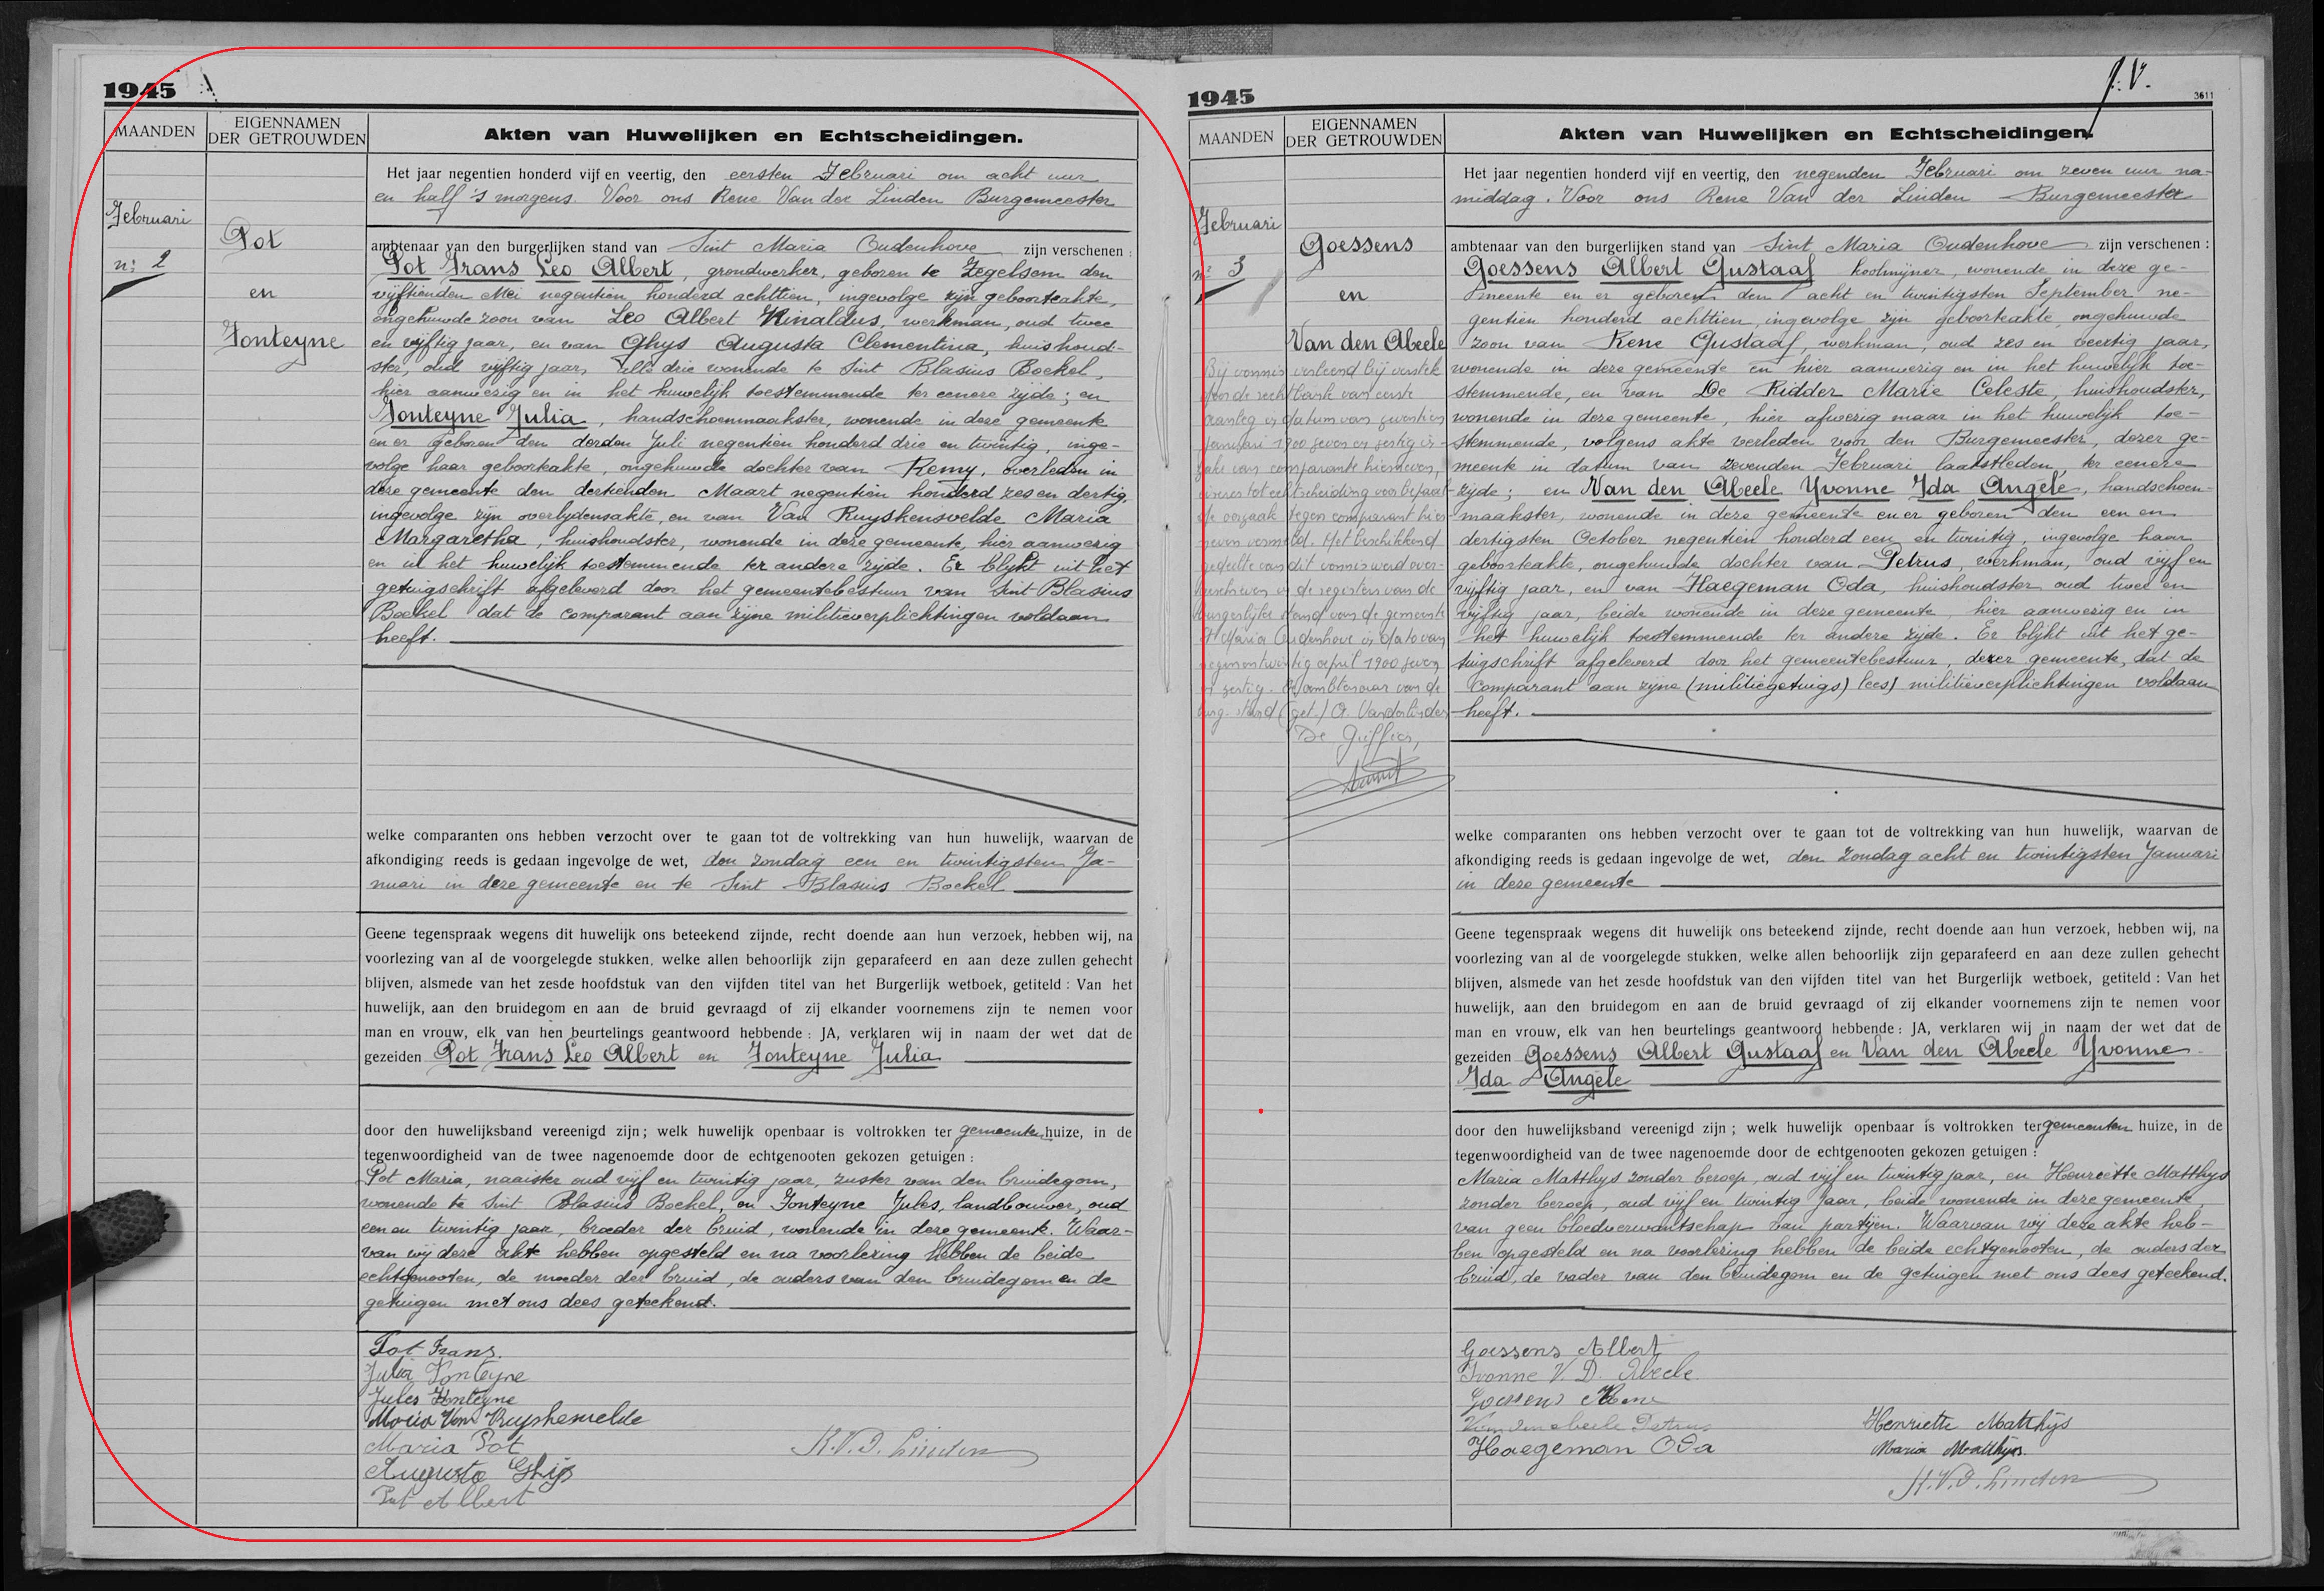 1945
MAANDEN
EIGENNAMEN
DER GETROUWDEN
Akten van Huwelijken en Echtscheidingen.
Februari
n: 2
Pot
en
Fonteyne
Het jaar negentien honderd vijf en veertig, den eersten Februari om acht uur
en half 's morgens. Voor ons Rene Van der Linden Burgemeester
ambtenaar van den burgerlijken stand van Sint Maria Oudenhove zijn verschenen :
Pot Frans Leo Albert, grondwerker, geboren te Zegelsem den
vijftienden Mei negentien honderd achttien, ingevolge zijn geboorteakte,
ongehuwde zoon van Leo Albert Rinaldus, werkman, oud twee
en vijftig jaar, en van Ghys Augusta Clementina, huishoud-
ster, oud vijftig jaar, alle drie wonende te Sint Blasius Boekel,
hier aanwezig en in het huwelijk toestemmende ter eenere zijde; en
Fonteyne Julia, handschoenmaakster, wonende in deze gemeente
en er geboren den derden Juli negentien honderd drie en twintig, inge-
volge haar geboorteakte, ongehuwde dochter van Remy, overleden in
deze gemeente den dertienden Maart negentien honderd zes en dertig,
ingevolge zijn overlijdensakte, en van Van Ruyskensvelde Maria
Margaretha, huishoudster, wonende in deze gemeente, hier aanwezig
en in het huwelijk toestemmende ter andere zijde. Er blijkt uit het
getuigschrift afgeleverd door het gemeentebestuur van Sint Blasius
Boekel dat de comparant aan zijne militieverplichtingen voldaan
heeft.
welke comparanten ons hebben verzocht over te gaan tot de voltrekking van hun huwelijk, waarvan de
afkondiging reeds is gedaan ingevolge de wet, den zondag een en twintigsten Ja-
nuari in deze gemeente en te Sint Blasius Boekel
Geene tegenspraak wegens dit huwelijk ons beteekend zijnde, recht doende aan hun verzoek, hebben wij, na
voorlezing van al de voorgelegde stukken, welke allen behoorlijk zijn geparafeerd en aan deze zullen gehecht
blijven, alsmede van het zesde hoofdstuk van den vijfden titel van het Burgerlijk wetboek, getiteld : Van het
huwelijk, aan den bruidegom en aan de bruid gevraagd of zij elkander voornemens zijn te nemen voor
man en vrouw, elk van hen beurtelings geantwoord hebbende : JA, verklaren wij in naam der wet dat de
gezeiden Pot Frans Leo Albert en Fonteyne Julia
door den huwelijksband vereenigd zijn ; welk huwelijk openbaar is voltrokken ter gemeentenhuize, in de
tegenwoordigheid van de twee nagenoemde door de echtgenooten gekozen getuigen :
Pot Maria, naaister oud vijf en twintig jaar, zuster van den bruidegom,
wonende te Sint Blasius Boekel, en Fonteyne Jules, landbouwer, oud
een en twintig jaar, broeder der bruid, wonende in deze gemeente. Waar-
van wij deze akte hebben opgesteld en na voorlezing hebben de beide
echtgenooten, de moeder der bruid, de ouders van den bruidegom en de
getuigen met ons dees geteekend.
Pot Frans.
Julia Fonteyne
Jules Fonteyne
Maria Van Ruyskensvelde
Maria Pot
R.V.D. Linden
Augusta Ghijs
Pot Albert
1945
J.V.
3611
MAANDEN
EIGENNAMEN
DER GETROUWDEN
Akten van Huwelijken en Echtscheidingen.
Februari
n: 3
Goessens
en
Van den Abeele
Bij vonnis verleend bij verstek
door de rechtbank van eerste
aanleg in datum van twintig
Januari 1900 zeven en zestig in
zake van comparante hiernevens,
eiseres tot echtscheiding voor bepaal-
de oorzaak tegen comparant hier-
neven vermeld. Het beschikkend
gedeelte van dit vonnis werd over-
geschreven in de registers van de
burgerlijke stand van de gemeente
St Maria Oudenhove in dato van
negenentwintig april 1900 zeven
en zestig. De ambtenaar van de
burg. stand (get.) A. Vanderlinden
De Griffier,
Het jaar negentien honderd vijf en veertig, den negenden Februari om zeven uur na-
middag. Voor ons Rene Van der Linden Burgemeester
ambtenaar van den burgerlijken stand van Sint Maria Oudenhove zijn verschenen :
Goessens Albert Gustaaf koolmijner, wonende in deze ge-
meente en er geboren den acht en twintigsten September ne-
gentien honderd achttien, ingevolge zijn geboorteakte, ongehuwde
zoon van Rene Gustaaf, werkman, oud zes en veertig jaar,
wonende in deze gemeente en hier aanwezig en in het huwelijk toe-
stemmende, en van De Ridder Marie Celeste, huishoudster,
wonende in deze gemeente, hier afwezig maar in het huwelijk toe-
stemmende, volgens akte verleden voor den Burgemeester, dezer ge-
meente in datum van zevenden Februari laatstleden, ter eenere
zijde; en Van den Abeele Yvonne Ida Angele, handschoen-
maakster, wonende in deze gemeente en er geboren den een en
dertigsten October negentien honderd een en twintig, ingevolge haar
geboorteakte, ongehuwde dochter van Petrus, werkman, oud vijf en
vijftig jaar, en van Haegeman Oda, huishoudster oud twee en
vijftig jaar, beide wonende in deze gemeente, hier aanwezig en in
het huwelijk toestemmende ter andere zijde. Er blijkt uit het ge-
tuigschrift afgeleverd door het gemeentebestuur, dezer gemeente, dat de
comparant aan zijne (militiegetuigs) lees) militieverplichtingen voldaan
heeft.
welke comparanten ons hebben verzocht over te gaan tot de voltrekking van hun huwelijk, waarvan de
afkondiging reeds is gedaan ingevolge de wet, den zondag acht en twintigsten Januari
in deze gemeente
Geene tegenspraak wegens dit huwelijk ons beteekend zijnde, recht doende aan hun verzoek, hebben wij, na
voorlezing van al de voorgelegde stukken, welke allen behoorlijk zijn geparafeerd en aan deze zullen gehecht
blijven, alsmede van het zesde hoofdstuk van den vijfden titel van het Burgerlijk wetboek, getiteld : Van het
huwelijk, aan den bruidegom en aan de bruid gevraagd of zij elkander voornemens zijn te nemen voor
man en vrouw, elk van hen beurtelings geantwoord hebbende : JA, verklaren wij in naam der wet dat de
gezeiden Goessens Albert Gustaaf en Van den Abeele Yvonne
Ida Angele
door den huwelijksband vereenigd zijn ; welk huwelijk openbaar is voltrokken ter gemeenten huize, in de
tegenwoordigheid van de twee nagenoemde door de echtgenooten gekozen getuigen :
Maria Matthys zonder beroep, oud vijf en twintig jaar, en Henriette Matthys
zonder beroep, oud vijf en twintig jaar, beide wonende in deze gemeente
van geen bloedverwantschap van partijen. Waarvan wij deze akte heb-
ben opgesteld en na voorlezing hebben de beide echtgenooten, de ouders der
bruid, de vader van den bruidegom en de getuigen met ons dees geteekend.
Goessens Albert
Ivonne V. D. Abeele
Goessens Rene
Vandenabeele Petrus
Henriette Matthijs
Haegeman Oda
Maria Matthijs.
R.V.D. Linden